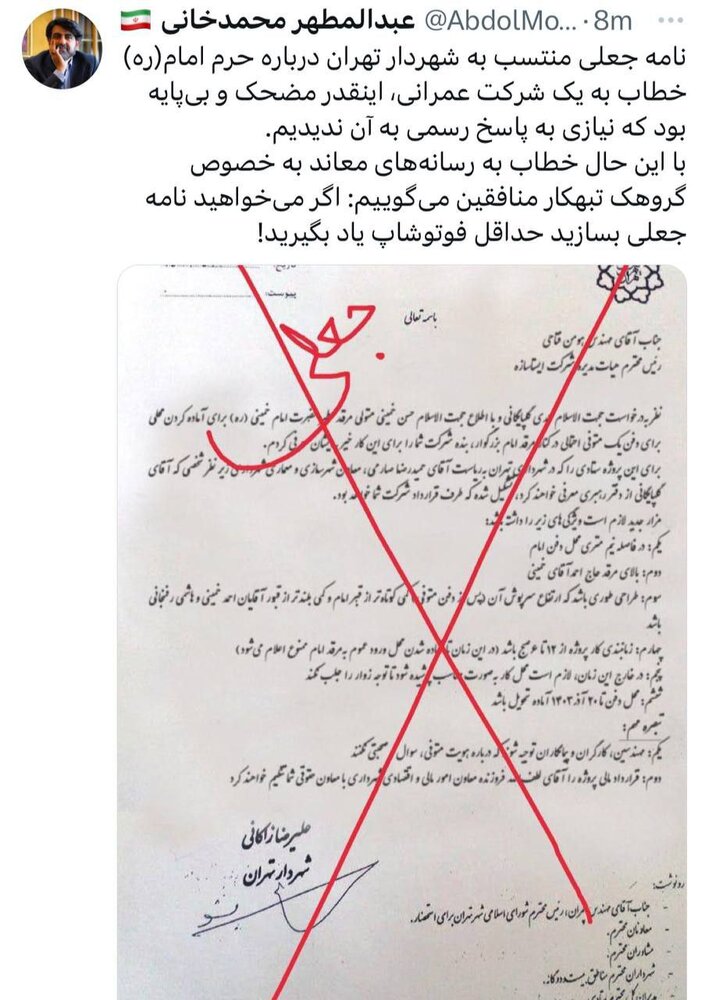 عبدالمطهر محمدخانی @AbdolMo... · 8m
نامه جعلی منتسب به شهردار تهران درباره حرم امام(ره)
خطاب به یک شرکت عمرانی، اینقدر مضحک و بی‌پایه
بود که نیازی به پاسخ رسمی به آن ندیدیم.
با این حال خطاب به رسانه‌های معاند به خصوص
گروهک تبهکار منافقین می‌گوییم: اگر می‌خواهید نامه
جعلی بسازید حداقل فوتوشاپ یاد بگیرید!
پیوست:
باسمه تعالی
جعلی
جناب آقای مهندس هومن فتاحی
رئیس محترم هیات مدیره شرکت ایستاسازه
نظر به درخواست حجت الاسلام گلپایگانی و با اطلاع حجت الاسلام حسن خمینی متولی مرقد حضرت امام خمینی (ره) برای آماده کردن محلی
برای دفن یک متوفی احتمالی در کنار مرقد امام بزرگوار، بنده شرکت شما را برای این کار خیر به ایشان معرفی کردم.
برای این پروژه ستادی را که در شهرداری تهران به ریاست آقای حمیدرضا صارمی، معاون شهرسازی و معماری شهرداری زیر نظر شخصی که آقای
گلپایگانی از دفتر رهبری معرفی خواهند کرد، تشکیل شده که طرف قرارداد شرکت شما خواهد بود.
مزار جدید لازم است ویژگی های زیر را داشته باشد:
یکم: در فاصله نیم متری محل دفن امام
دوم: بالای مرقد حاج احمد آقای خمینی
سوم: طراحی طوری باشد که ارتفاع سرپوش آن (پس از دفن متوفی) کمی کوتاه‌تر از قبر امام و کمی بلندتر از قبور آقایان احمد خمینی و هاشمی رفسنجانی
باشد
چهارم: زمانبندی کار پروژه از ۱۲ تا ۶ صبح باشد (در این زمان تا آماده شدن محل ورود عموم به مرقد امام ممنوع اعلام می‌شود)
پنجم: در خارج این زمان، لازم است محل کار به صورت مناسب پوشیده شود تا توجه زوار را جلب نکند
ششم: محل دفن تا ۲۰ آذر ۱۴۰۳ آماده تحویل باشد
تبصره مهم:
یکم: مهندسین، کارگران و پیمانکاران توجیه شوند که درباره هویت متوفی، سوال و صحبتی نکنند
دوم: قرارداد مالی پروژه را آقای لطف‌الله فروزنده معاون امور مالی و اقتصادی شهرداری با معاون حقوقی شما تنظیم خواهند کرد
علیرضا زاکانی
شهردار تهران
رونوشت:
- جناب آقای مهندس چمران، رئیس محترم شورای اسلامی شهر تهران برای استحضار.
- معاونان محترم.
- مشاوران محترم.
- شهرداران محترم مناطق بیست و دوگانه.